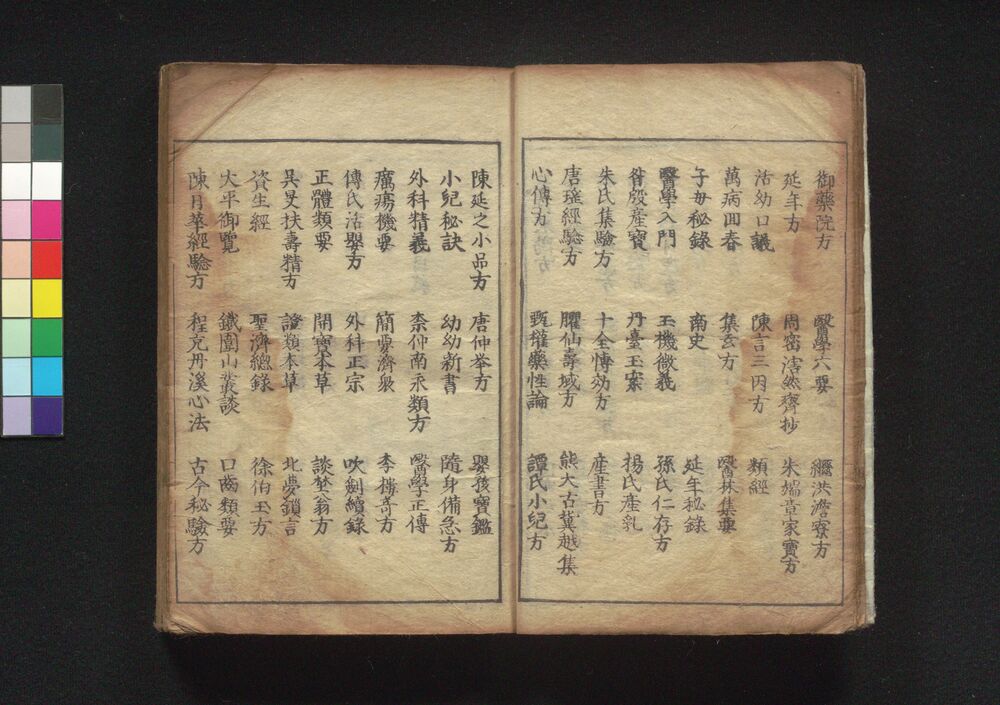 御藥院方　醫學六要　繼洪澹寮方
延年方　周密浩然齊抄　朱端章家寶方
活幼口議　陳言三因方　類經
萬病回春　集玄方　醫林集要
子母秘錄　南史　延年秘錄
醫學入門　玉機微義　孫氏仁存方
昝殷産寶　丹臺玉案　揚氏産乳
朱氏集驗方　十全博効方　産書方
唐瑤經驗方　臞仙壽域方　熊大古冀越集
心傳方　甄權藥性論　譚氏小兒方
陳延之小品方　唐仲举方　嬰孩寶鑑
小兒秘訣　幼幼新書　隨身備急方
外科精義　柰仲南永類方　醫學正傳
癘瘍機要　簡要濟衆　李樓竒方
傳氏活嬰方　外科正宗　吹劍續錄
正體類要　開寶本草　談埜翁方
吴旻扶壽精方　證類本草　北夢鎖言
資生經　聖濟總錄　徐伯玉方
大平御覽　鐵圍山叢談　口齒類要
陳月華經驗方　程充丹溪心法　古今秘驗方